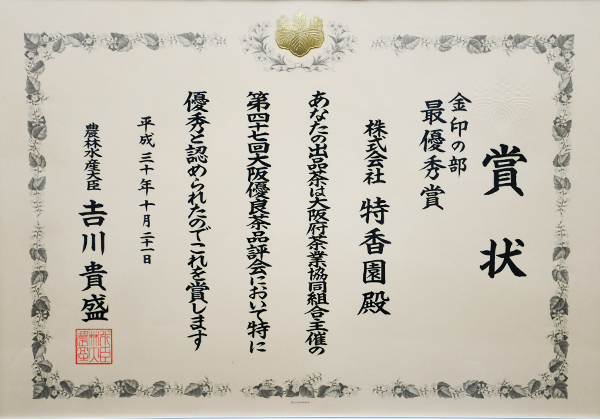 賞状
金印の部
最優秀賞
株式会社 特香園殿
あなたの出品茶は大阪府茶業協同組合主催の
第四十七回大阪優良茶品評会において特に
優秀と認められたのでこれを賞します
平成三十年十月二十一日
農林水産大臣 𠮷川貴盛